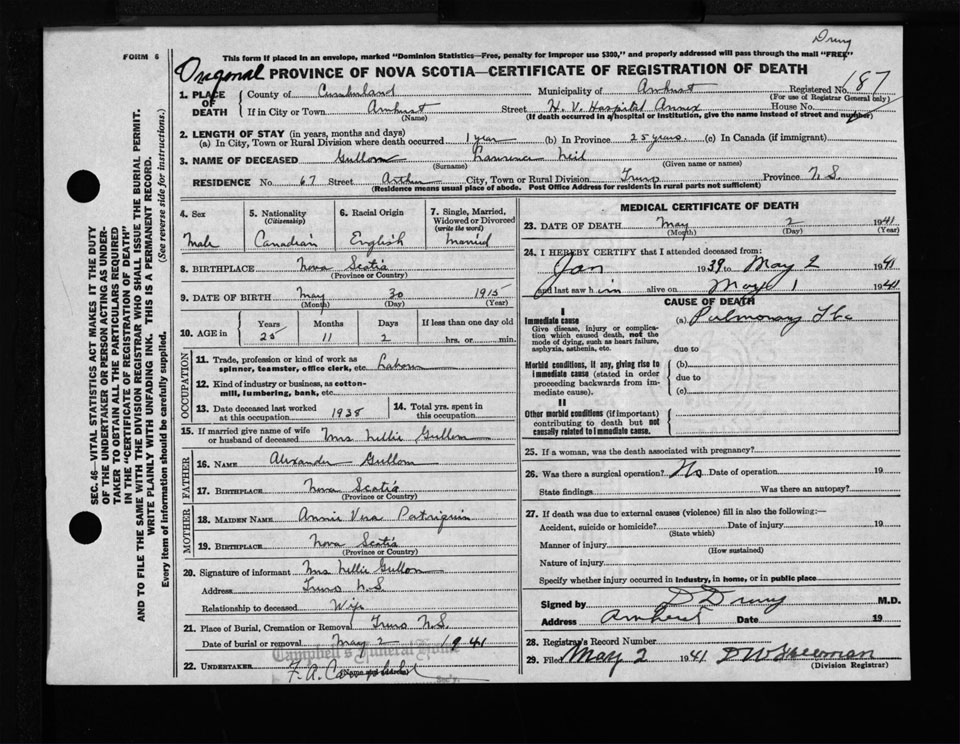 Drury
FORM 6
This form if placed in an envelope, marked "Dominion Statistics—Free, penalty for improper use $300," and properly addressed will pass through the mail "FREE"
Original PROVINCE OF NOVA SCOTIA—CERTIFICATE OF REGISTRATION OF DEATH
1. PLACE OF DEATH
County of Cumberland Municipality of Amherst Registered No. 187
(For use of Registrar General only)
If in City or Town Amherst Street H. V. Hospital Annex House No.
(Name) (If death occurred in a hospital or institution, give the name instead of street and number)
2. LENGTH OF STAY (in years, months and days)
(a) In City, Town or Rural Division where death occurred 1 year (b) In Province 25 years (c) In Canada (if immigrant)
3. NAME OF DECEASED Gullon Lawrence Neil
(Surname) (Given name or names)
RESIDENCE No. 67 Street Arthur City, Town or Rural Division Truro Province N.S.
(Residence means usual place of abode. Post Office Address for residents in rural parts not sufficient)
4. Sex
Male
5. Nationality
(Citizenship)
Canadian
6. Racial Origin
English
7. Single, Married, Widowed or Divorced
(write the word)
Married
8. BIRTHPLACE Nova Scotia
(Province or Country)
9. DATE OF BIRTH May 30 1915
(Month) (Day) (Year)
10. AGE in
Years Months Days If less than one day old
25 11 2 hrs. or min.
OCCUPATION
11. Trade, profession or kind of work as spinner, teamster, office clerk, etc. Labour
12. Kind of industry or business, as cotton-mill, lumbering, bank, etc.
13. Date deceased last worked at this occupation 1938
14. Total yrs. spent in this occupation
15. If married give name of wife or husband of deceased Mrs Nellie Gullon
FATHER
16. NAME Alexander Gullon
17. BIRTHPLACE Nova Scotia
(Province or Country)
MOTHER
18. MAIDEN NAME Annie Vera Patriquin
19. BIRTHPLACE Nova Scotia
(Province or Country)
20. Signature of informant Mrs Nellie Gullon
Address Truro N.S.
Relationship to deceased Wife
21. Place of Burial, Cremation or Removal Truro N.S.
Date of burial or removal May 2 1941
Campbell's Funeral Home
22. UNDERTAKER F. A. Campbell
MEDICAL CERTIFICATE OF DEATH
23. DATE OF DEATH May 2 1941
(Month) (Day) (Year)
24. I HEREBY CERTIFY that I attended deceased from:
Jan 1939 to May 2 1941
and last saw him alive on May 1 1941
CAUSE OF DEATH
I
Immediate cause (a) Pulmonary Tbc
Give disease, injury or complication which caused death, not the mode of dying, such as heart failure, asphyxia, asthenia, etc.
due to
Morbid conditions, if any, giving rise to immediate cause (stated in order proceeding backwards from immediate cause).
(b)
due to
(c)
II
Other morbid conditions (if important) contributing to death but not causally related to immediate cause.
25. If a woman, was the death associated with pregnancy?
26. Was there a surgical operation? No Date of operation 19
State findings Was there an autopsy?
27. If death was due to external causes (violence) fill in also the following:—
Accident, suicide or homicide? Date of injury 19
(State which)
Manner of injury
(How sustained)
Nature of injury
Specify whether injury occurred in industry, in home, or in public place
Signed by D Drury M.D.
Address Amherst Date 19
28. Registrar's Record Number
29. Filed May 2 1941
(Division Registrar)
SEC. 46—VITAL STATISTICS ACT MAKES IT THE DUTY
OF THE UNDERTAKER OR PERSON ACTING AS UNDER-
TAKER TO OBTAIN ALL THE PARTICULARS REQUIRED
IN THE "CERTIFICATE OF REGISTRATION OF DEATH"
AND TO FILE THE SAME WITH THE DIVISION REGISTRAR WHO SHALL ISSUE THE BURIAL PERMIT.
WRITE PLAINLY WITH UNFADING INK. THIS IS A PERMANENT RECORD.
Every item of information should be carefully supplied. (See reverse side for instructions.)